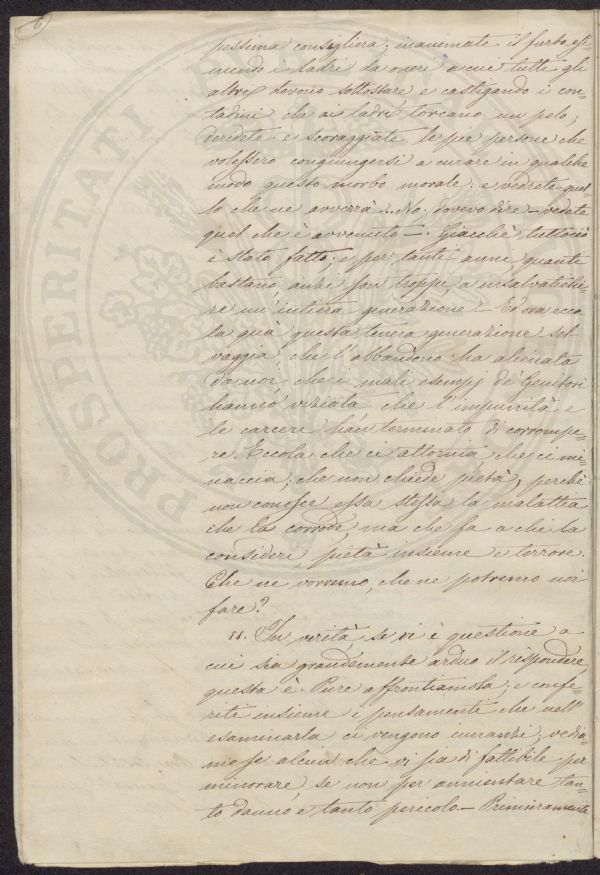 6)
pessima consigliera; inanimate il furto, esi=
mendo i ladri da oneri a cui tutti gli
altri devono sottostare e castigando i con=
tadini che ai ladri torcano un pelo;
deridete e scoraggiate le pie persone che
volessero congiungersi a curare in qualche
modo questo morbo morale; e vedrete quel
lo che ne avverrà... No; dovevo dire – vedete
quel che è avvenuto –. Giacchè tuttociò
è stato fatto; e per tanti anni quanti
bastano anzi son troppi, a insalvatichi=
re un'intiera generazione – Ed ora ecco
la quà questa tenera generazione sel
vaggia che l'abbandono ha alienata
da noi; che i mali esempj de' Genitori
hanno viziata che l'impunità e
le carceri han terminato di corrompe=
re. Eccola che ci attornia che ci mi=
naccia; che non chiede pietà, perchè
non conosce essa stessa la malattia
che la corrode, ma che fa a chi la
consideri, pietà insieme e terrore.
Che ne vorremo, che ne potremo noi
fare?
11. In verità se vi è questione a
cui sia grandemente arduo il rispondere,
questa è. Pure affrontiamola; e confe=
rite insieme i pensamenti che nell'
esaminarla ci vengono innanzi; vedia=
mo se alcun che vi sia di fattibile per
minorare se non per annientare tan=
to danno e tanto pericolo – Primieramente
PROSPERITATI